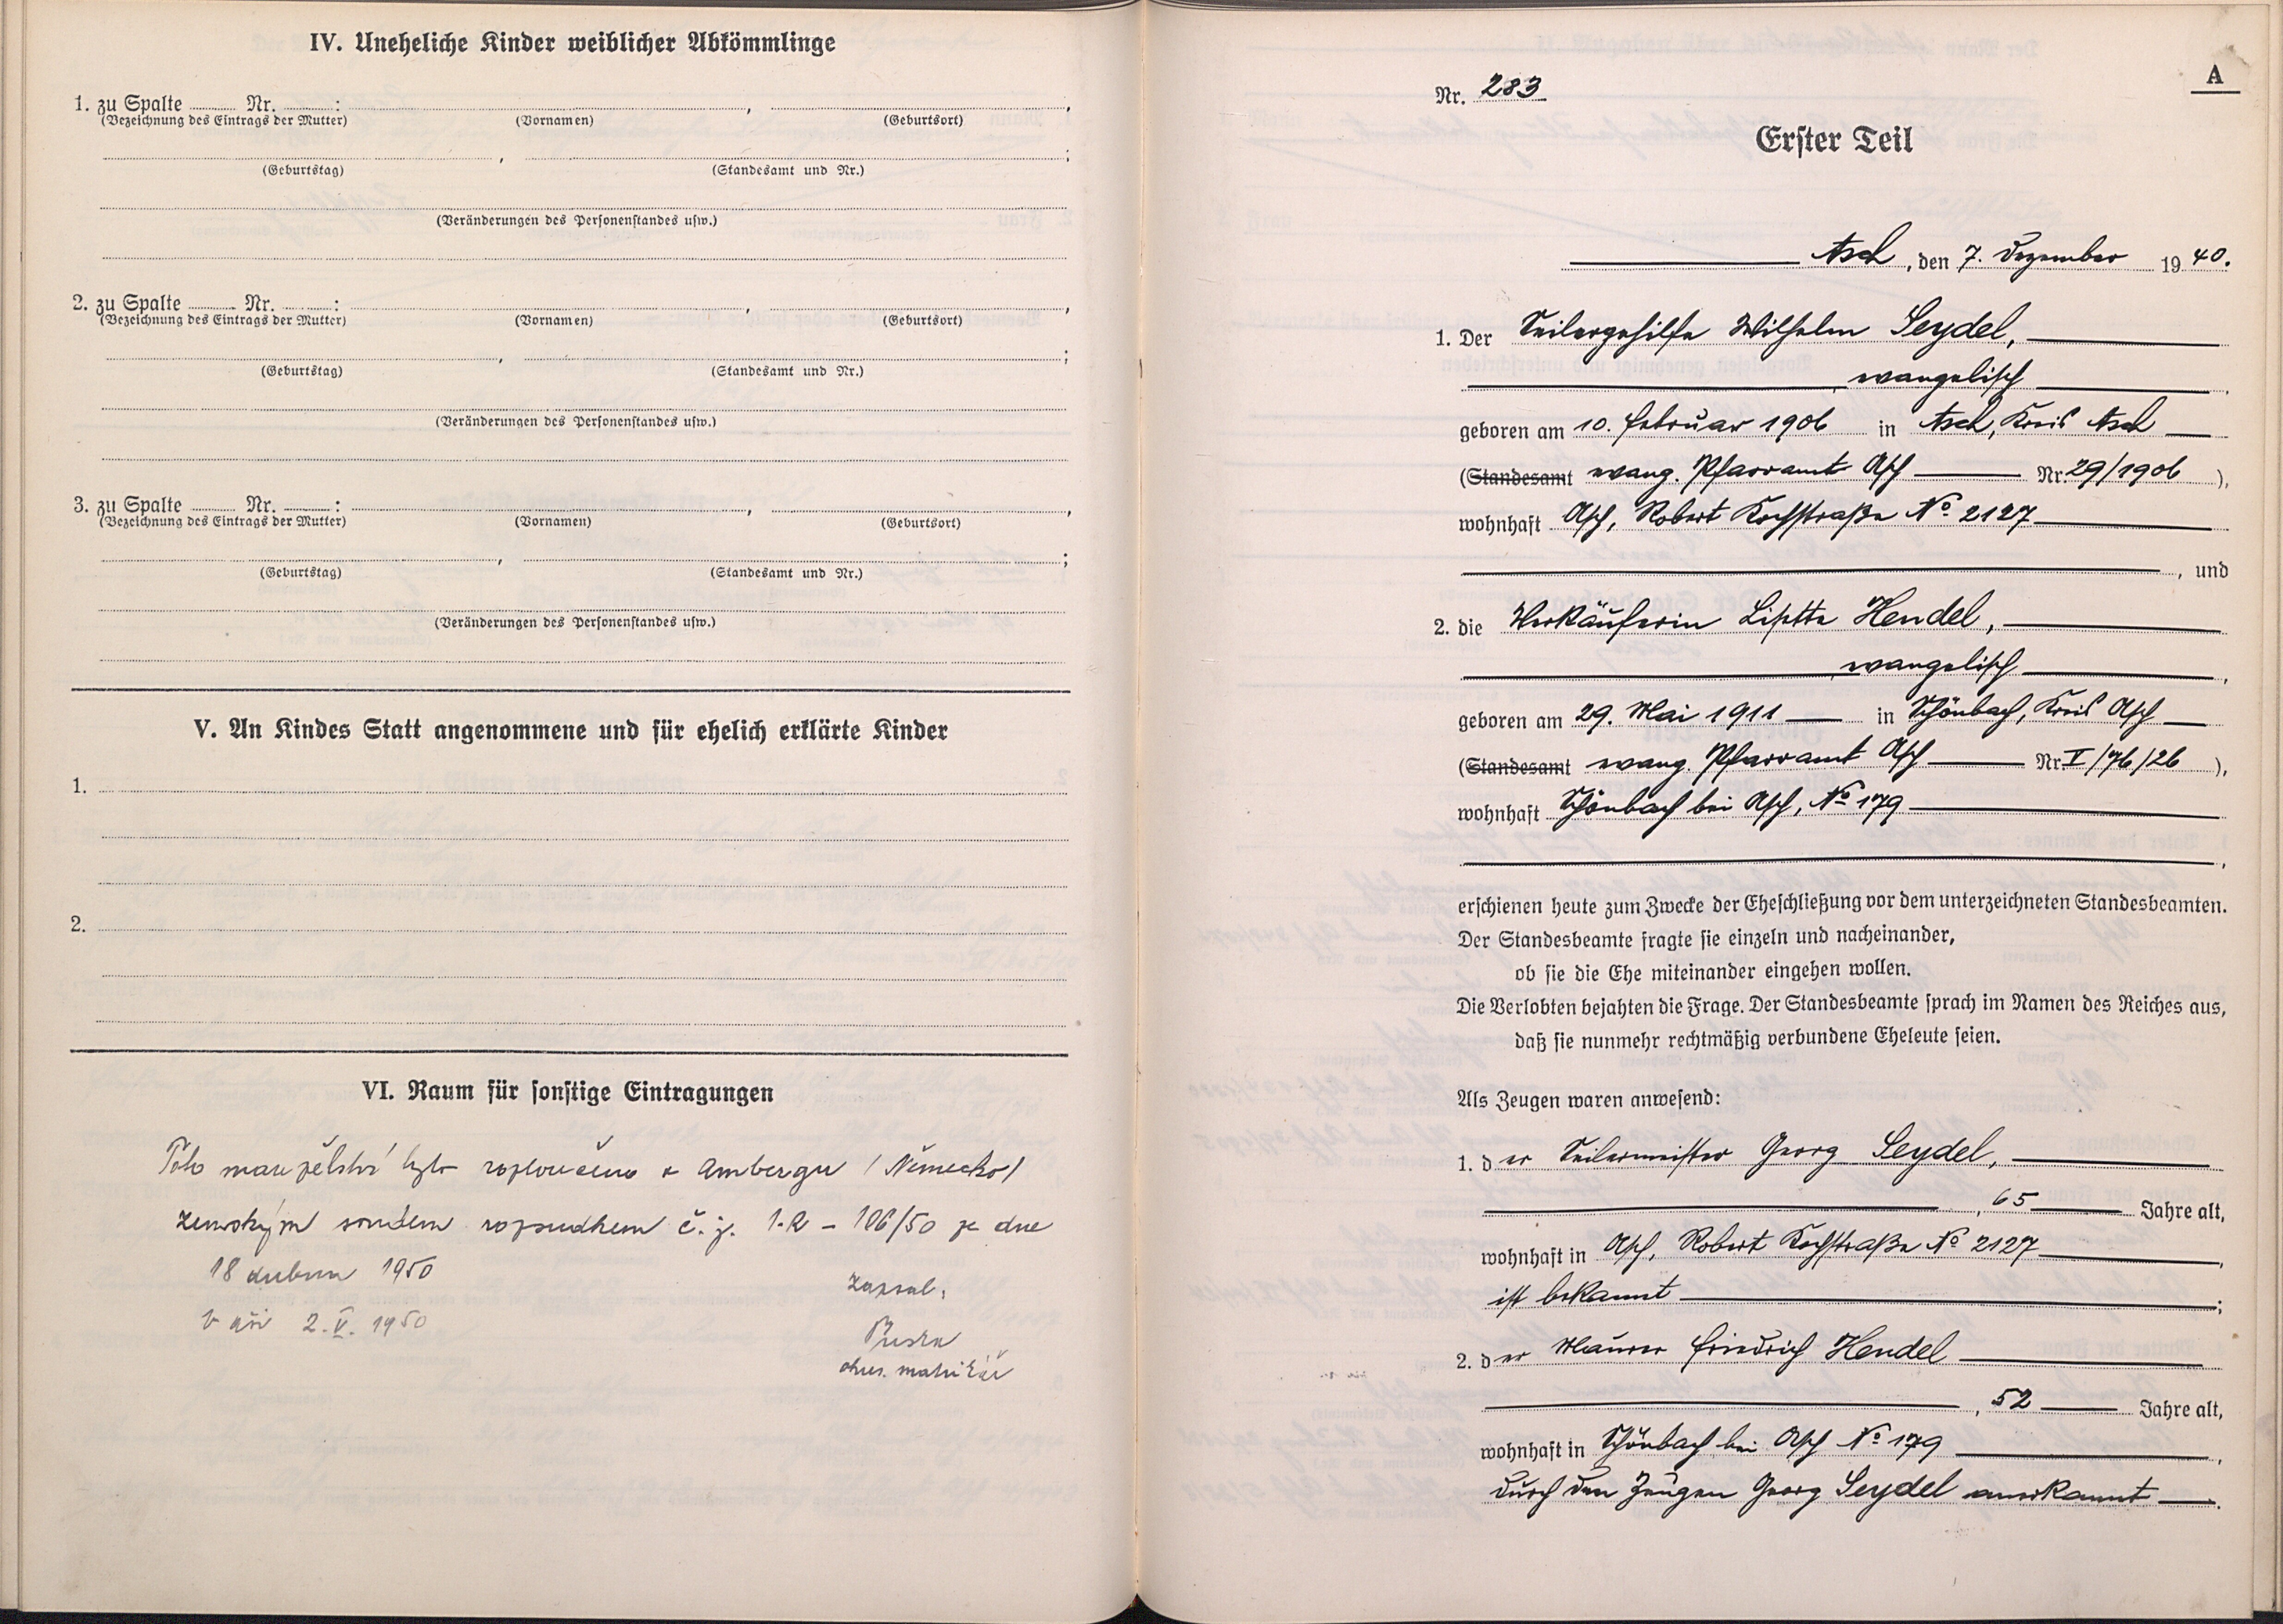 IV. Uneheliche Kinder weiblicher Abkömmlinge
1. zu Spalte Nr. : , ,
(Bezeichnung des Eintrags der Mutter) (Vornamen) (Geburtsort)
, ;
(Geburtstag) (Standesamt und Nr.)
(Veränderungen des Personenstandes usw.)
2. zu Spalte Nr. : , ,
(Bezeichnung des Eintrags der Mutter) (Vornamen) (Geburtsort)
, ;
(Geburtstag) (Standesamt und Nr.)
(Veränderungen des Personenstandes usw.)
3. zu Spalte Nr. : , ,
(Bezeichnung des Eintrags der Mutter) (Vornamen) (Geburtsort)
, ;
(Geburtstag) (Standesamt und Nr.)
(Veränderungen des Personenstandes usw.)
V. An Kindes Statt angenommene und für ehelich erklärte Kinder
1.
2.
VI. Raum für sonstige Eintragungen
Toto manželství bylo rozloučeno v Ambergu /Německo/
zemským soudem rozsudkem č.j. 1-R - 106/50 ze dne
18 dubna 1950
V Aši 2.V. 1950
Zapsal:
matrikář
A
Nr. 283
Erster Teil
Asch, den 7. Dezember 1940.
1. Der Seilergehilfe Wilhelm Seydel,
evangelisch,
geboren am 10. Februar 1906 in Asch, Kreis Asch
(Standesamt evang. Pfarramt Asch Nr. 29/1906),
wohnhaft Asch, Robert Kochstraße No 2127
, und
2. die Verkäuferin Lisette Hendel,
evangelisch,
geboren am 29. Mai 1911 in Schönbach, Kreis Asch
(Standesamt evang. Pfarramt Asch Nr. V/76/26),
wohnhaft Schönbach bei Asch, No 179
,
erschienen heute zum Zwecke der Eheschließung vor dem unterzeichneten Standesbeamten.
Der Standesbeamte fragte sie einzeln und nacheinander,
ob sie die Ehe miteinander eingehen wollen.
Die Verlobten bejahten die Frage. Der Standesbeamte sprach im Namen des Reiches aus,
daß sie nunmehr rechtmäßig verbundene Eheleute seien.
Als Zeugen waren anwesend:
1. der Seilermeister Georg Seydel,
, 65 Jahre alt,
wohnhaft in Asch, Robert Kochstraße No 2127,
ist bekannt;
2. der Maurer Friedrich Hendel
, 52 Jahre alt,
wohnhaft in Schönbach bei Asch No 179,
durch den Zeugen Georg Seydel anerkannt.